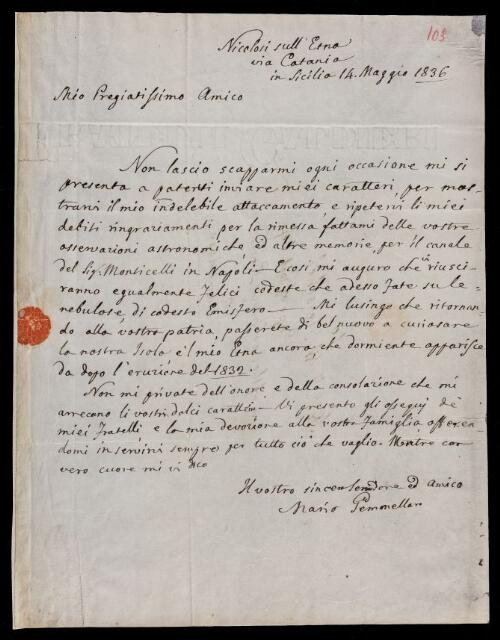 103
Nicolosi sull' Etna
via Catania
in Sicilia 14. Maggio 1836
Mio Pregiatissimo Amico
Non lascio scapparmi ogni occasione mi si
presenta a potervi inviare miei caratteri, per mos-
trarvi il mio indelebile attaccamento e ripetervi li miei
debiti ringraziamenti per la rimessa fattami delle vostre
osservazioni astronomiche ed altre memorie, per il canale
del Sig. Monticelli in Napoli — E così mi auguro che vi riusci-
ranno egualmente felici codeste che adesso fate su le
nebulose, di codesto Emisfero — Mi lusingo che ritornan-
do alla vostra patria, passerete di bel nuovo a curiosare
la nostra Isola e'l mio Etna ancora, che dormiente apparisce
da dopo l'eruzione del 1832.
Non mi private dell'onore e della consolazione che mi
arrecano li vostri dolci caratteri — Vi presento gli ossequj de'
miei Fratelli e la mia devozione alla vostra Famiglia offeren-
domi in servirvi sempre per tutto ciò che vaglio. Mentre con
vero cuore mi vi dico
Il vostro sincero Servidore ed Amico
Mario Gemmellaro